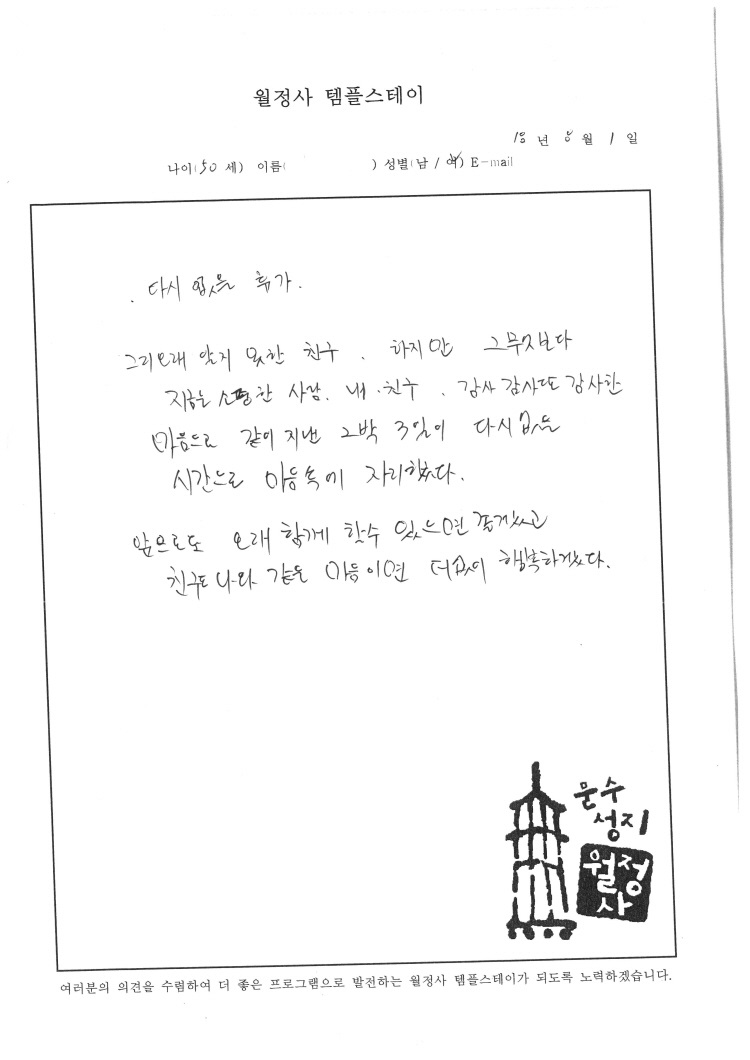 월정사 템플스테이
18 년 8 월 1 일
나이(50 세) 이름( ) 성별(남 / 여) E-mail
. 다시 없을 휴가.
그리오래 알지 못한 친구. 하지만 그무엇보다
지금은 소중한 사람. 내 친구. 감사 감사또 감사한
마음으로 같이 지낸 2박 3일이 다시 없을
시간으로 마음속에 자리했다.
앞으로도 오래 함께 할수 있으면 좋겠고
친구도 나와 같은 마음이면 더없이 행복하겠다.
문수
성지
월정
사
여러분의 의견을 수렴하여 더 좋은 프로그램으로 발전하는 월정사 템플스테이가 되도록 노력하겠습니다.